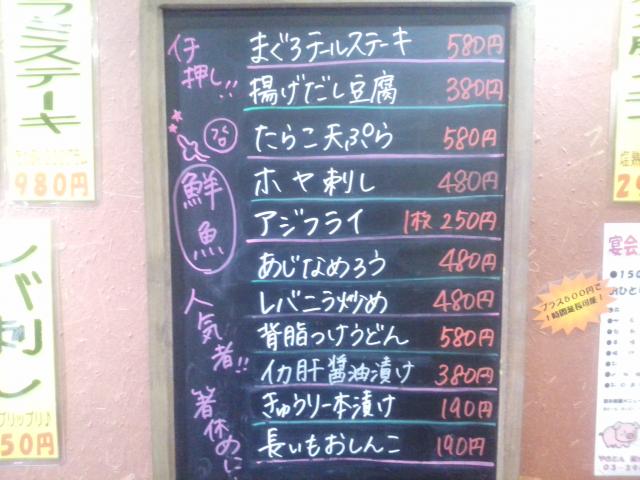 イチ押し!!
まぐろテールステーキ 580円
揚げだし豆腐 380円
たらこ天ぷら 580円
鮮魚
ホヤ刺し 480円
アジフライ 1枚 250円
あじなめろう 480円
人気者!!
レバニラ炒め 480円
背脂つけうどん 580円
イカ肝醤油漬け 380円
箸休めに
きゅうり一本漬け 190円
長いもおしんこ 190円
ミステーキ
980円
レバ刺し
プリップリ♪
50円
宴会
プラス500円で
1時間延長可能!